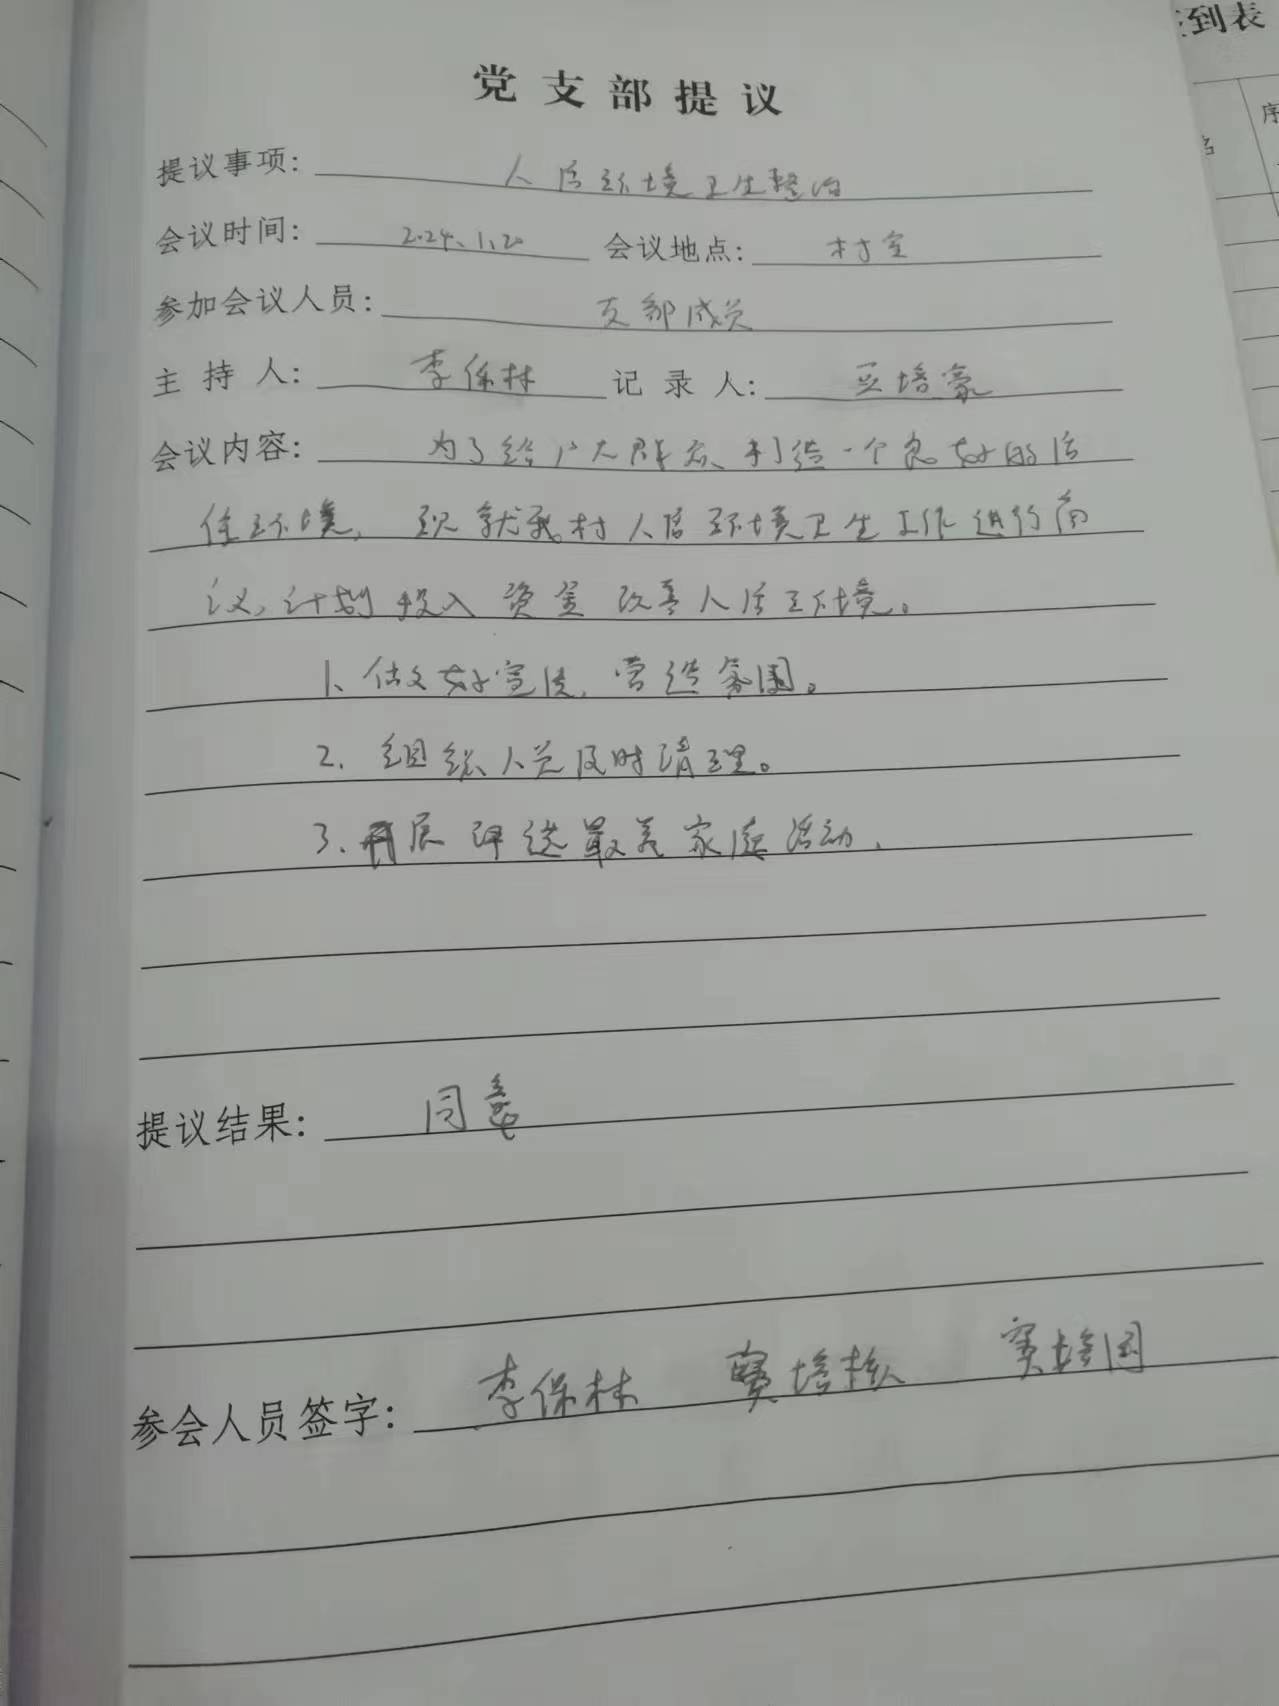 到表
序
党支部提议
提议事项: 人居环境卫生整治
会议时间: 2024、1、20 会议地点: 村室
参加会议人员: 支部成员
主持人: 李保林 记录人: 豆培豪
会议内容: 为了给广大群众、制造一个良好的居
住环境, 现就我村人居环境卫生工作进行商
议, 计划投入资金改善人居环境。
1、做好宣传, 营造氛围。
2、组织人员及时清理。
3、开展评选最美家庭活动.
提议结果: 同意
参会人员签字: 李保林 培 培